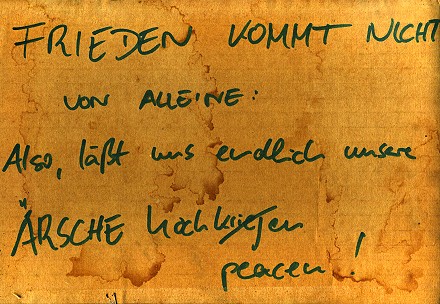 FRIEDEN KOMMT NICHT
VON ALLEINE:
Also, läßt uns endlich unsere
ÄRSCHE hochkriegen
peacen!